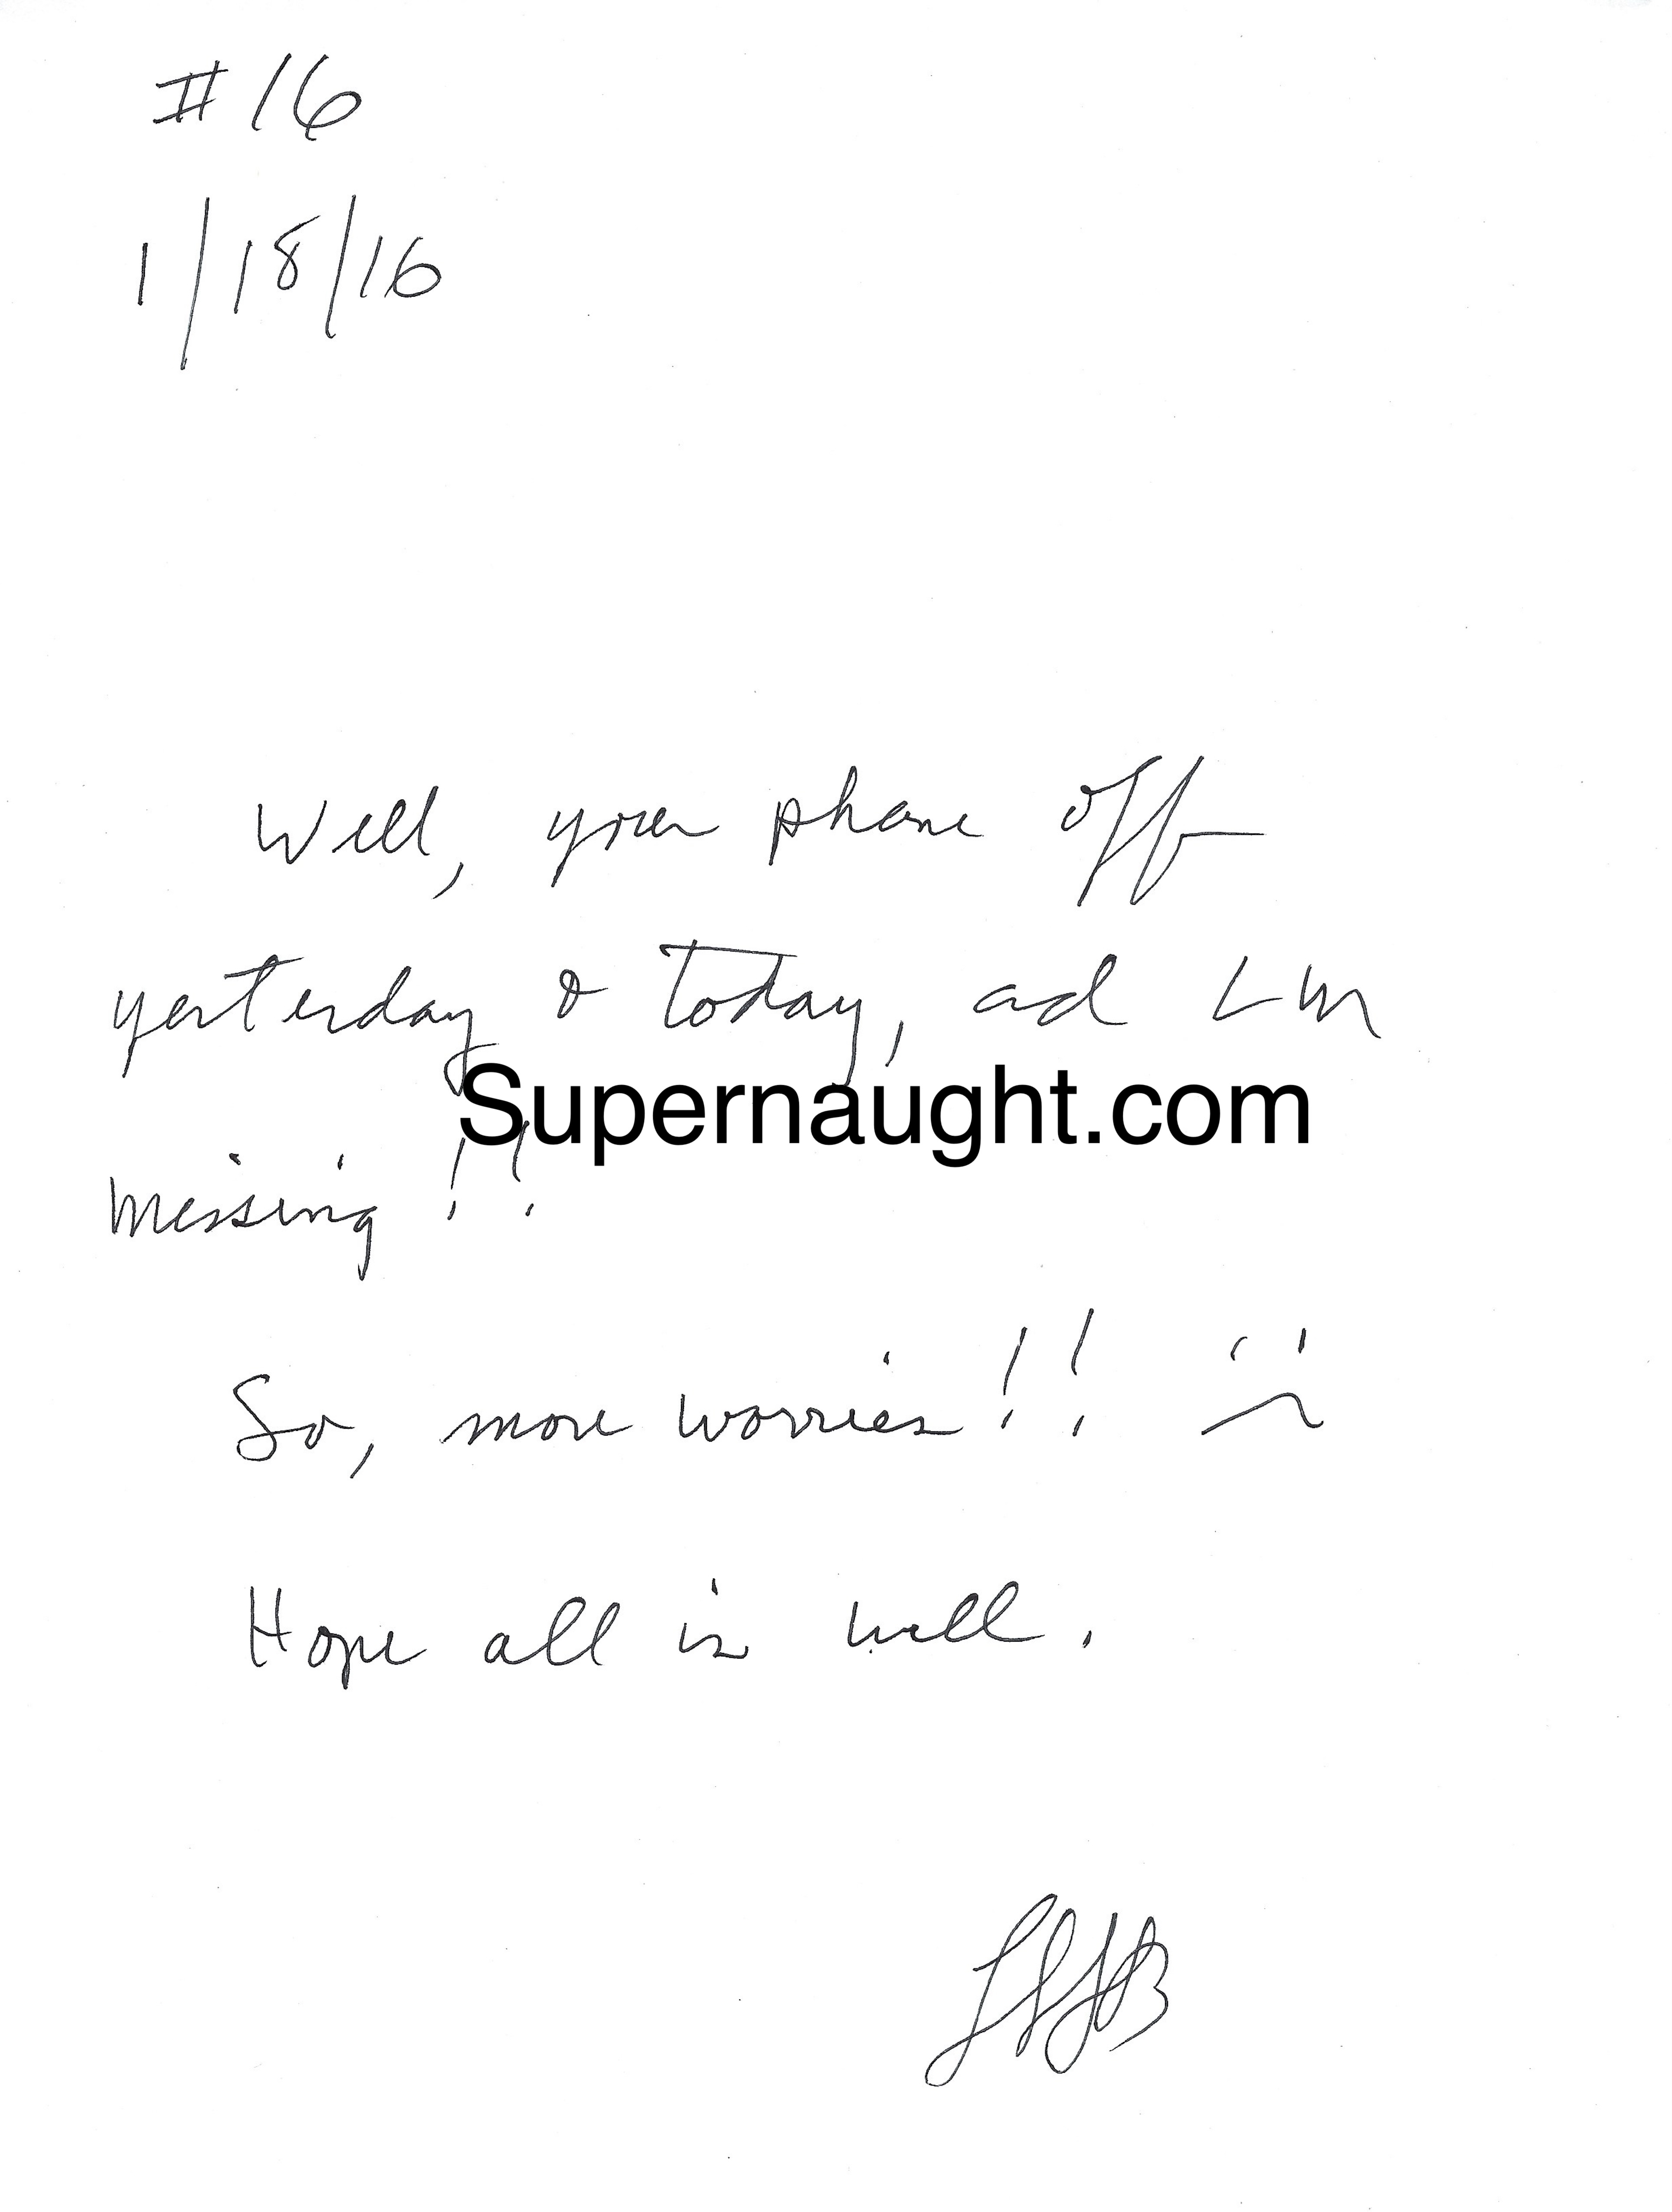 #16
1/18/16
Well, your phone off
yesterday & today, ad LM
Supernaught.com
missing!!
So, more worries!!
Hope all is well.